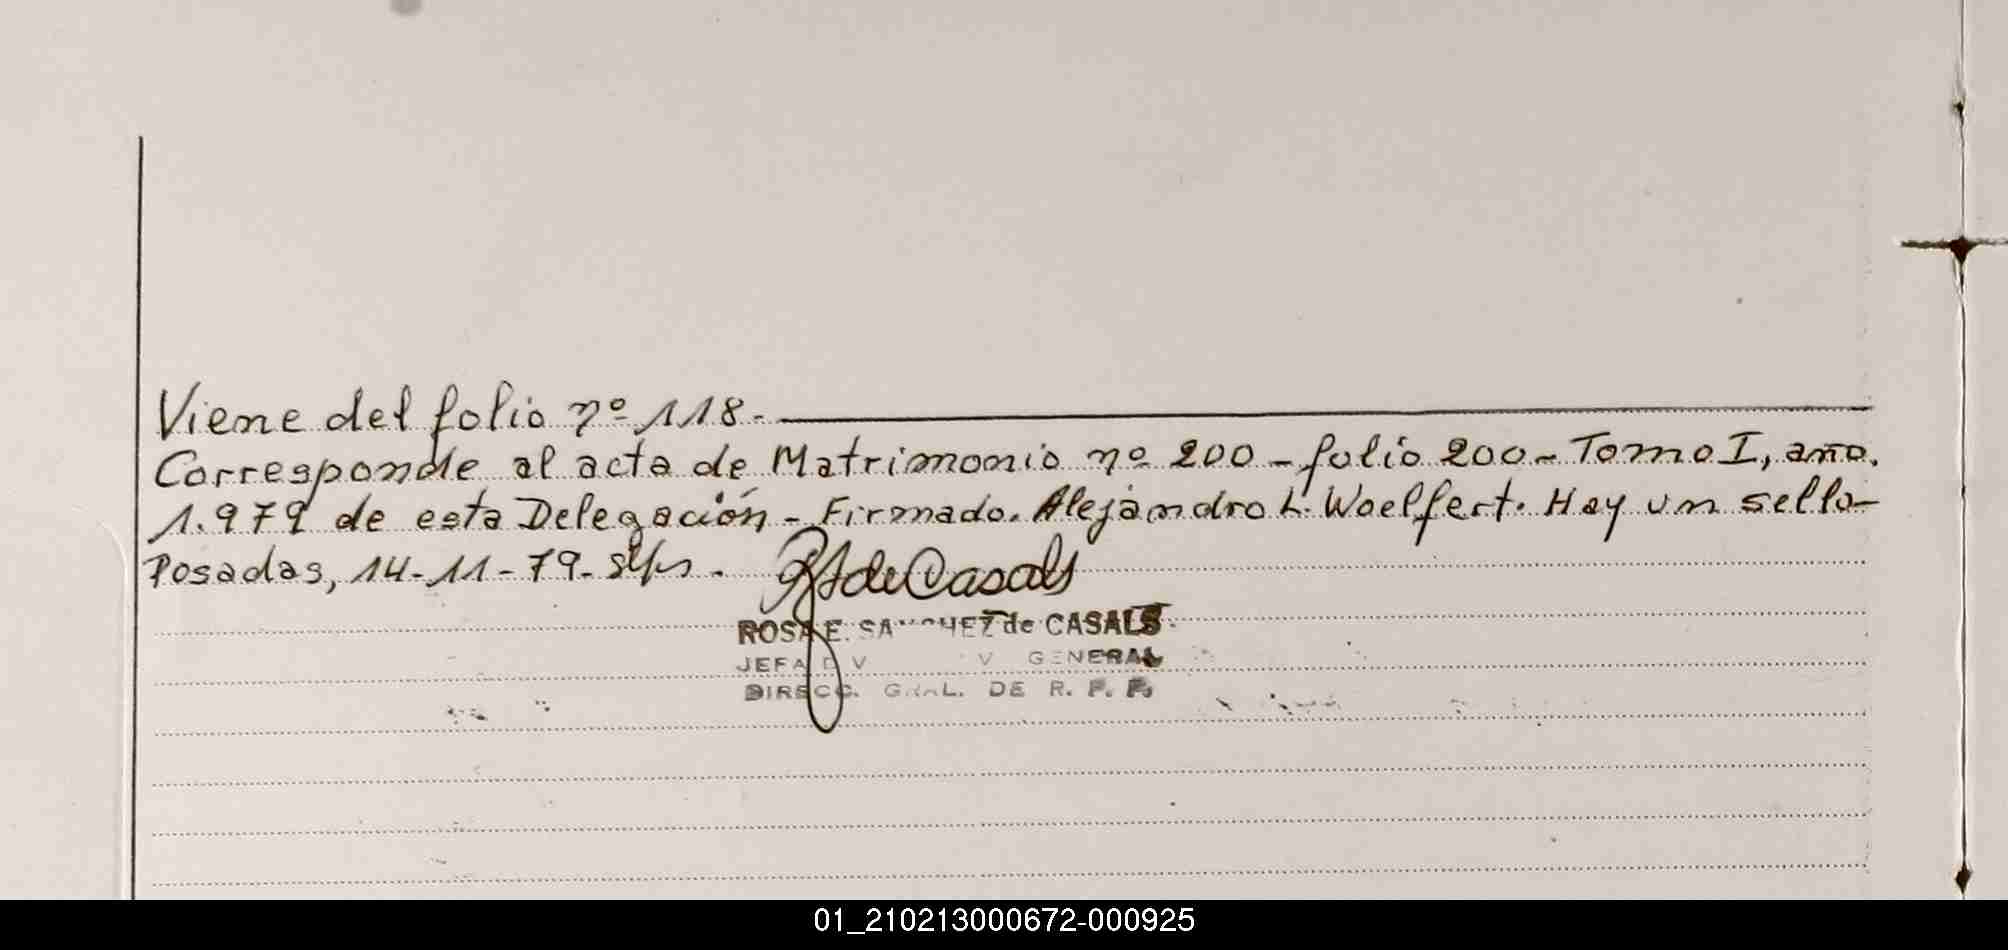 Viene del folio nº 118.-
Corresponde al acta de Matrimonio nº 200 - folio 200 - Tomo I, año.
1.979 de esta Delegación - Firmado. Alejandro L. Woelfert. Hay un sello-
Posadas, 14-11-79-
RSdeCasals
ROSA E. SANCHEZ de CASALS
JEFA GENERAL
DIRECC. GRAL. DE R. P. P.
01_210213000672-000925